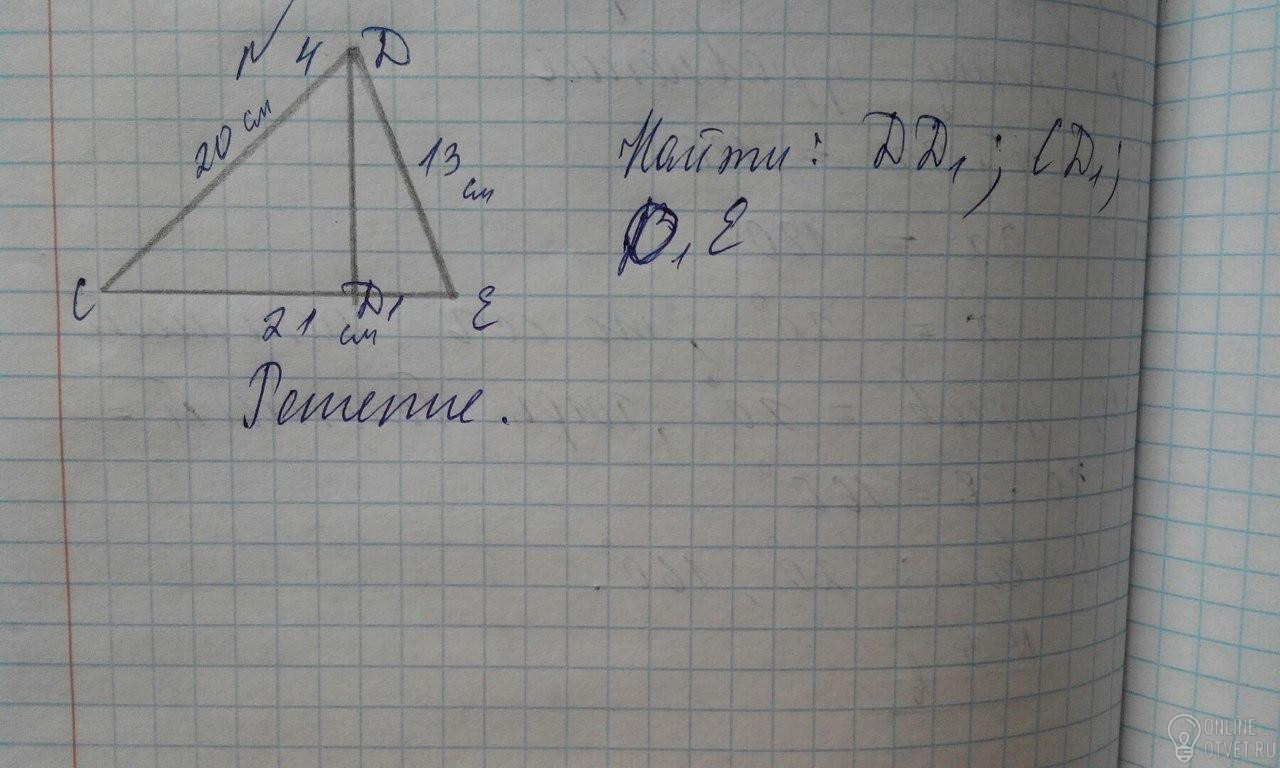 N 4 D
20 см
13 см
Найти: DD₁; CD₁;
D₁E
C D₁ E
21 см
Решение.
ONLINE
OTVET.RU